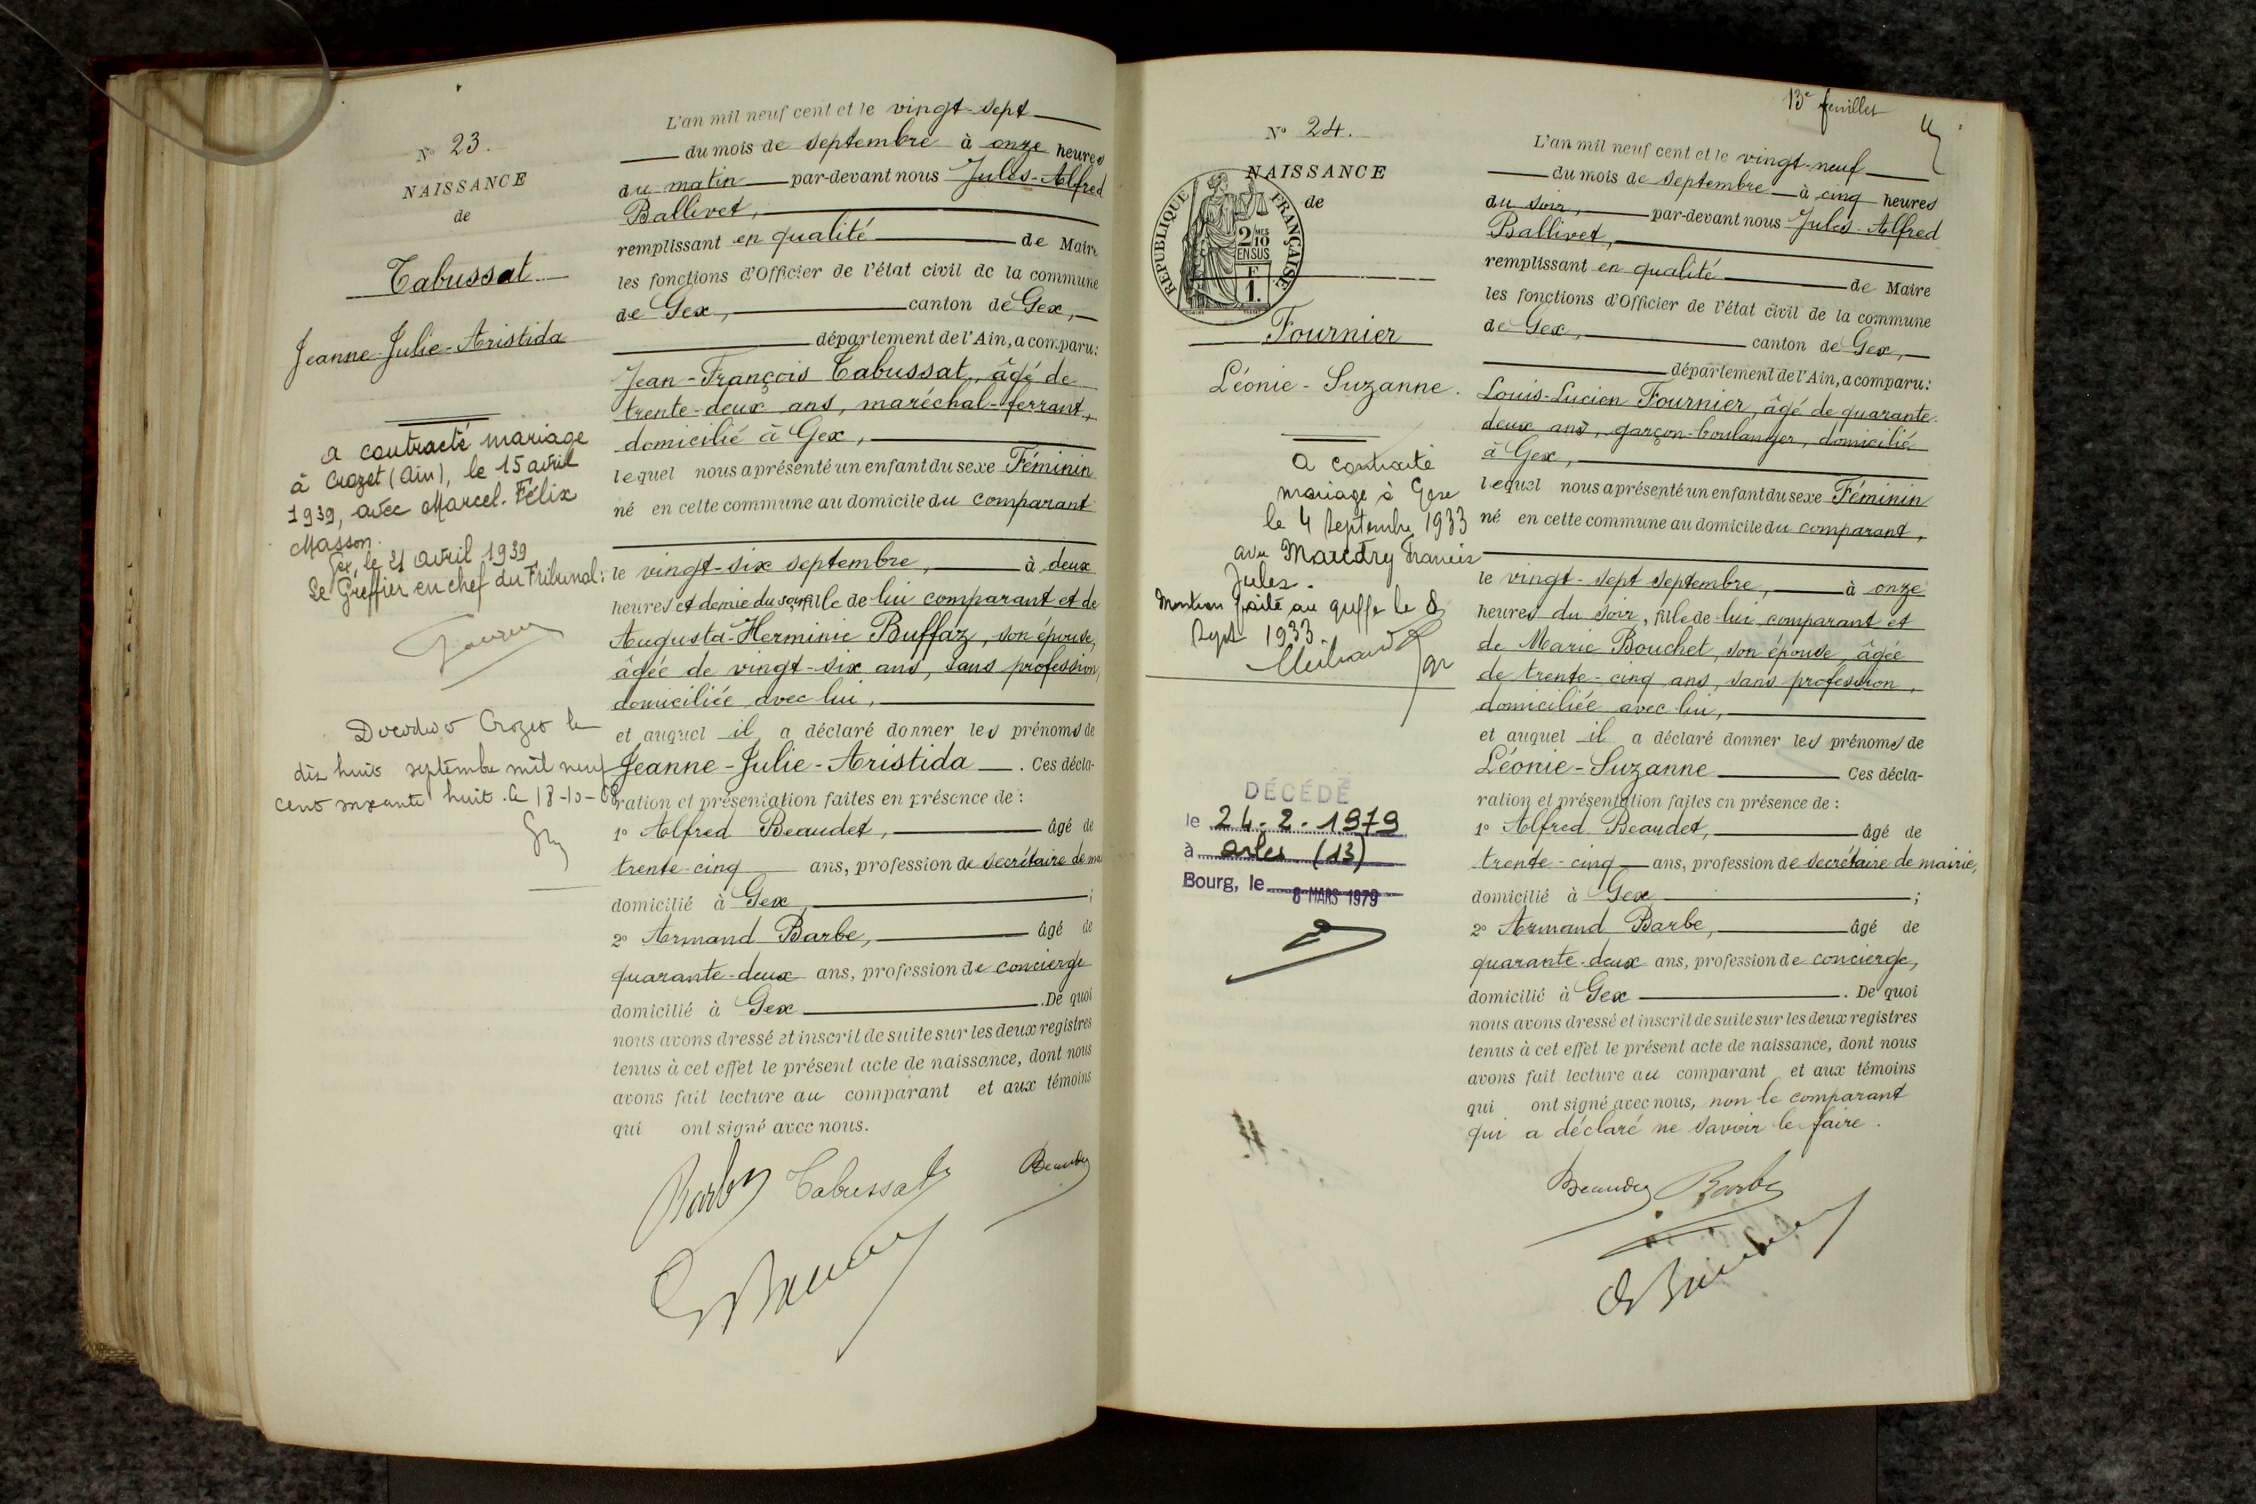 N° 23.
NAISSANCE
de
Tabussat
Jeanne-Julie-Aristida
a contracté mariage
à Crozet (Ain), le 15 avril
1939, avec Marcel-Félix
Masson.
Gex, le 21 avril 1939
Le Greffier en chef du Tribunal:
Crozet le
dix huit septembre mil neuf
cent soixante huit. le 18-10-68
L'an mil neuf cent et le vingt-sept
du mois de septembre à onze heures
du matin par-devant nous Jules-Alfred
Ballivet,
remplissant en qualité de Maire
les fonctions d'Officier de l'état civil de la commune
de Gex, canton de Gex,
département de l'Ain, a comparu:
Jean-François Tabussat, âgé de
trente-deux ans, maréchal-ferrant,
domicilié à Gex,
lequel nous a présenté un enfant du sexe Féminin
né en cette commune au domicile du comparant
le vingt-six septembre, à deux
heures et demie du soir, fille de lui comparant et de
Augusta-Herminie Buffaz, son épouse,
âgée de vingt-six ans, sans profession,
domiciliée avec lui,
et auquel il a déclaré donner les prénoms de
Jeanne-Julie-Aristida. Ces décla-
ration et présentation faites en présence de :
1° Alfred Beaudet, âgé de
trente-cinq ans, profession de secrétaire de mai
domicilié à Gex, ;
2° Armand Barbe, âgé de
quarante-deux ans, profession de concierge
domicilié à Gex. De quoi
nous avons dressé et inscrit de suite sur les deux registres
tenus à cet effet le présent acte de naissance, dont nous
avons fait lecture au comparant et aux témoins
qui ont signé avec nous.
Barbe Tabussat Beaudet
13e feuillet
N° 24.
NAISSANCE
de
RÉPUBLIQUE FRANÇAISE
2/10 MES
EN SUS
F
1.
Fournier
Léonie-Suzanne.
a contracté
mariage à Gex
le 4 Septembre 1933
avec Francis
Jules.
Mention faite au greffe le 8
Sept 1933.
DÉCÉDÉ
le 24.2.1979
à Arles (13)
Bourg, le 8 MARS 1979
L'an mil neuf cent et le vingt-neuf
du mois de septembre à cinq heures
du soir, par-devant nous Jules-Alfred
Ballivet,
remplissant en qualité de Maire
les fonctions d'Officier de l'état civil de la commune
de Gex, canton de Gex,
département de l'Ain, a comparu:
Louis-Lucien Fournier, âgé de quarante-
deux ans, garçon-boulanger, domicilié
à Gex,
lequel nous a présenté un enfant du sexe Féminin
né en cette commune au domicile du comparant,
le vingt-sept septembre, à onze
heures du soir, fille de lui comparant et
de Marie Bouchet, son épouse âgée
de trente-cinq ans, sans profession,
domiciliée avec lui,
et auquel il a déclaré donner les prénoms de
Léonie-Suzanne Ces décla-
ration et présentation faites en présence de :
1° Alfred Beaudet, âgé de
trente-cinq ans, profession de secrétaire de mairie,
domicilié à Gex ;
2° Armand Barbe, âgé de
quarante-deux ans, profession de concierge,
domicilié à Gex. De quoi
nous avons dressé et inscrit de suite sur les deux registres
tenus à cet effet le présent acte de naissance, dont nous
avons fait lecture au comparant et aux témoins
qui ont signé avec nous, non le comparant
qui a déclaré ne savoir le faire.
Beaudet Barbe